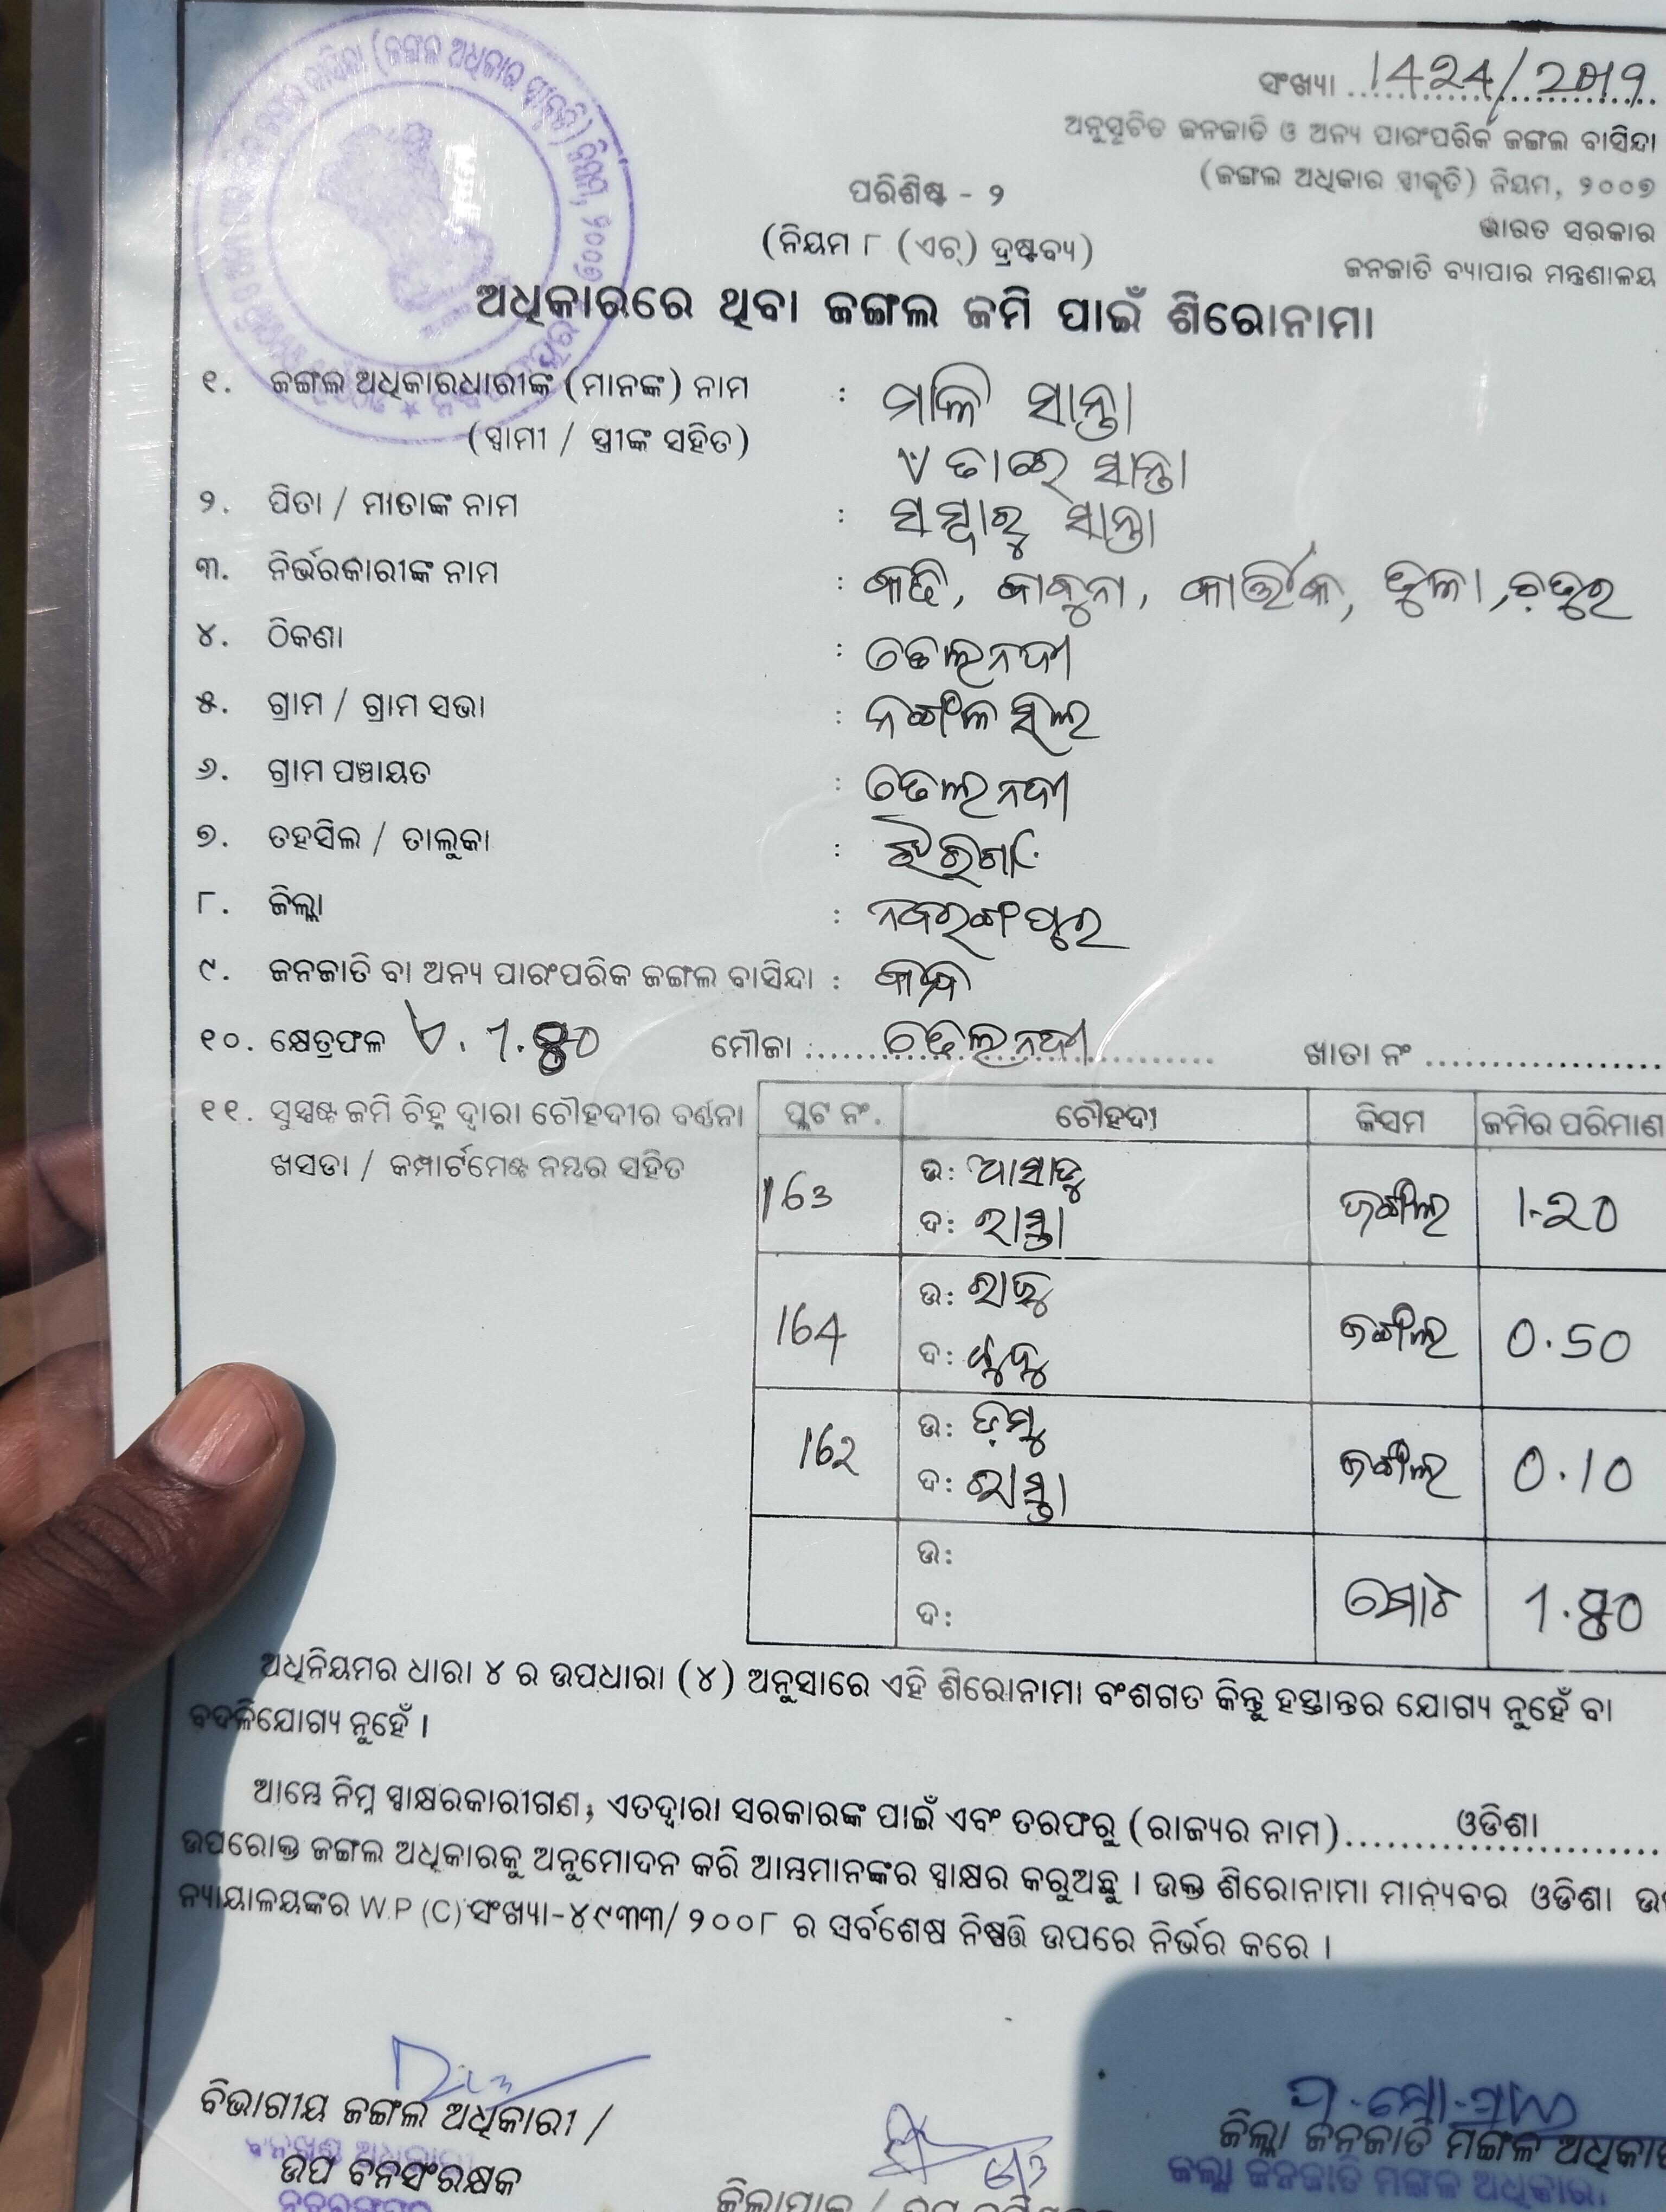 ସଂଖ୍ୟା 1424/2019
ଅନୁସୂଚିତ ଜନଜାତି ଓ ଅନ୍ୟ ପାରଂପରିକ ଜଙ୍ଗଲ ବାସିନ୍ଦା
(ଜଙ୍ଗଲ ଅଧିକାର ସ୍ୱୀକୃତି) ନିୟମ, ୨୦୦୭
ଭାରତ ସରକାର
ଜନଜାତି ବ୍ୟାପାର ମନ୍ତ୍ରଣାଳୟ
ପରିଶିଷ୍ଟ - ୨
(ନିୟମ ୮ (ଏଚ୍) ଦ୍ରଷ୍ଟବ୍ୟ)
ଅଧିକାରରେ ଥିବା ଜଙ୍ଗଲ ଜମି ପାଇଁ ଶିରୋନାମା
୧. ଜଙ୍ଗଲ ଅଧିକାରଧାରୀଙ୍କ (ମାନଙ୍କ) ନାମ : ମାଳି ସାନ୍ତା
(ସ୍ୱାମୀ / ସ୍ତ୍ରୀଙ୍କ ସହିତ) ସାନ୍ତା
୨. ପିତା / ମାତାଙ୍କ ନାମ : ସାନ୍ତା
୩. ନିର୍ଭରକାରୀଙ୍କ ନାମ : କାର୍ତ୍ତିକ,
୪. ଠିକଣା : ତେଲନଦୀ
୫. ଗ୍ରାମ / ଗ୍ରାମ ସଭା :
୬. ଗ୍ରାମ ପଞ୍ଚାୟତ : ତେଲନଦୀ
୭. ତହସିଲ / ତାଲୁକା : ଝରିଗାଁ
୮. ଜିଲ୍ଲା : ନବରଙ୍ଗପୁର
୯. ଜନଜାତି ବା ଅନ୍ୟ ପାରଂପରିକ ଜଙ୍ଗଲ ବାସିନ୍ଦା :
୧୦. କ୍ଷେତ୍ରଫଳ ମୌଜା : ତେଲନଦୀ ଖାତା ନଂ
୧୧. ସୁସ୍ପଷ୍ଟ ଜମି ଚିହ୍ନ ଦ୍ୱାରା ଚୌହଦୀର ବର୍ଣ୍ଣନା
ଖସଡା / କମ୍ପାର୍ଟମେଣ୍ଟ ନମ୍ବର ସହିତ
ପ୍ଲଟ ନଂ. ଚୌହଦୀ କିସମ ଜମିର ପରିମାଣ
163 ଉ: ଆସାଡୁ ଜଙ୍ଗଲ 1-20
ଦ: ରାସ୍ତା
164 ଉ: ରାଜୁ ଜଙ୍ଗଲ 0.50
ଦ:
162 ଉ: ଡ଼ମ୍ବୁ ଜଙ୍ଗଲ 0.10
ଦ: ରାସ୍ତା
ଉ: ମୋଟ
ଦ:
ଅଧିନିୟମର ଧାରା ୪ ର ଉପଧାରା (୪) ଅନୁସାରେ ଏହି ଶିରୋନାମା ବଂଶଗତ କିନ୍ତୁ ହସ୍ତାନ୍ତର ଯୋଗ୍ୟ ନୁହେଁ ବା
ବଦଳିଯୋଗ୍ୟ ନୁହେଁ ।
ଆମ୍ଭେ ନିମ୍ନ ସ୍ୱାକ୍ଷରକାରୀଗଣ, ଏତଦ୍ୱାରା ସରକାରଙ୍କ ପାଇଁ ଏବଂ ତରଫରୁ (ରାଜ୍ୟର ନାମ) ଓଡିଶା
ଉପରୋକ୍ତ ଜଙ୍ଗଲ ଅଧିକାରକୁ ଅନୁମୋଦନ କରି ଆମ୍ଭମାନଙ୍କର ସ୍ୱାକ୍ଷର କରୁଅଛୁ । ଉକ୍ତ ଶିରୋନାମା ମାନ୍ୟବର ଓଡିଶା
ନ୍ୟାୟାଳୟଙ୍କର W.P (C) ସଂଖ୍ୟା-୪୯୩୩/୨୦୦୮ ର ସର୍ବଶେଷ ନିଷ୍ପତ୍ତି ଉପରେ ନିର୍ଭର କରେ ।
ବିଭାଗୀୟ ଜଙ୍ଗଲ ଅଧିକାରୀ /
ଉପ ବନସଂରକ୍ଷକ
ଜିଲ୍ଲା ଜନଜାତି ମଙ୍ଗଳ
ଜିଲ୍ଲା ଜନଜାତି ମଙ୍ଗଳ ଅଧିକାରୀ